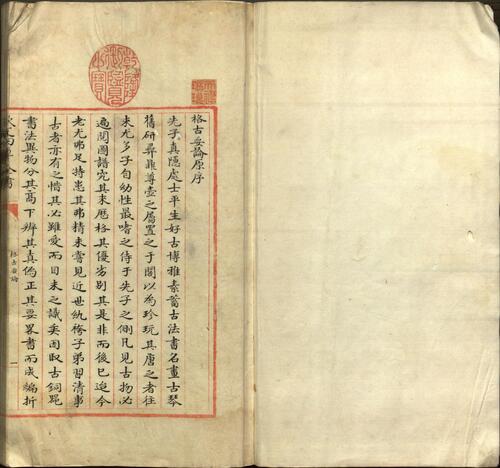 乾隆御覽之寶
格古要論原序
先子真隱處士平生好古博雅素蓄古法書名畫古琴
舊研彛鼎尊壺之屬置之于閣以為珍玩其售之者往
來尤多予自幼性最嗜之侍于先子之側凡見古物必
遍閱圖譜究其来歴格其優劣别其是非而後已迨今
老尤弗足持患其弗精未嘗見近世紈袴子弟習清事
古者亦有之惜其心雖愛而目未之識矣因取古銅器
書法異物分其髙下辨其真偽正其要畧書而成編析
欽定四庫全書
格古要論
一